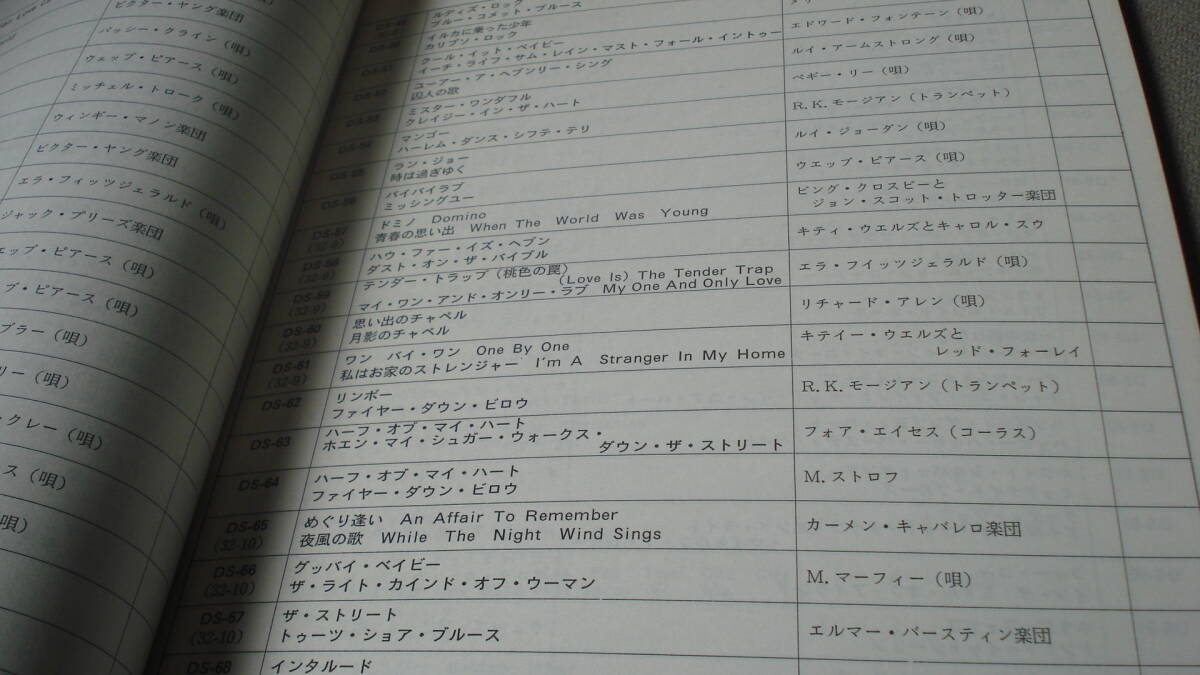 ビクター・ヤング楽団
パッシー・クライン（唄）
ウェップ・ピアース（唄）
ミッチェル・トローク（唄）
ウィンギー・マノン楽団
ビクター・ヤング楽団
エラ・フィッツジェラルド（唄）
ジャック・プリーズ楽団
ェップ・ピアース（唄）
ブ・ピアース（唄）
ブラー（唄）
リー（唄）
・クレー（唄）
ス（唄）
（唄）
ルディズ・ロック
ブルー・コメット・ブルース
イルカに乗った少年
カリプソ・ロック
エドワード・フォンテーン（唄）
クール・イット・ベイビー
イーチ・ライフ・サム・レイン・マスト・フォール・イントゥー
ルイ・アームストロング（唄）
ユーアー・ア・ヘブンリー・シング
囚人の歌
ペギー・リー（唄）
ミスター・ワンダフル
クレイジー・イン・ザ・ハート
R.K.モージアン（トランペット）
DS-54
マンゴー
ハーレム・ダンス・シフテ・テリ
ルイ・ジョーダン（唄）
DS-55
ラン・ジョー
時は過ぎゆく
ウエップ・ピアース（唄）
DS-56
バイバイラブ
ミッシングユー
ビング・クロスビーと
ジョン・スコット・トロッター楽団
DS-57
(32-9)
ドミノ Domino
青春の思い出 When The World Was Young
キティ・ウエルズとキャロル・スウ
DS-58
(32-9)
ハウ・ファー・イズ・ヘブン
ダスト・オン・ザ・バイブル
エラ・フイッツジェラルド（唄）
DS-59
(32-9)
テンダー・トラップ（桃色の罠）
(Love Is) The Tender Trap
マイ・ワン・アンド・オンリー・ラブ My One And Only Love
リチャード・アレン（唄）
DS-60
(32-9)
思い出のチャペル
月影のチャペル
キテイー・ウエルズと
レッド・フォーレイ
DS-61
(32-9)
ワン バイ・ワン One By One
私はお家のストレンジャー I'm A Stranger In My Home
R.K.モージアン（トランペット）
DS-62
リンボー
ファイヤー・ダウン・ビロウ
フォア・エイセス（コーラス）
DS-63
ハーフ・オブ・マイ・ハート
ホエン・マイ・シュガー・ウォークス・
ダウン・ザ・ストリート
M.ストロフ
DS-64
ハーフ・オブ・マイ・ハート
ファイヤー・ダウン・ビロウ
カーメン・キャバレロ楽団
DS-65
(32-10)
めぐり逢い An Affair To Remember
夜風の歌 While The Night Wind Sings
M.マーフィー（唄）
DS-66
(32-10)
グッバイ・ベイビー
ザ・ライト・カインド・オフ・ウーマン
エルマー・バースティン楽団
DS-67
(32-10)
ザ・ストリート
トゥーツ・ショア・ブルース
DS-68
インタルード